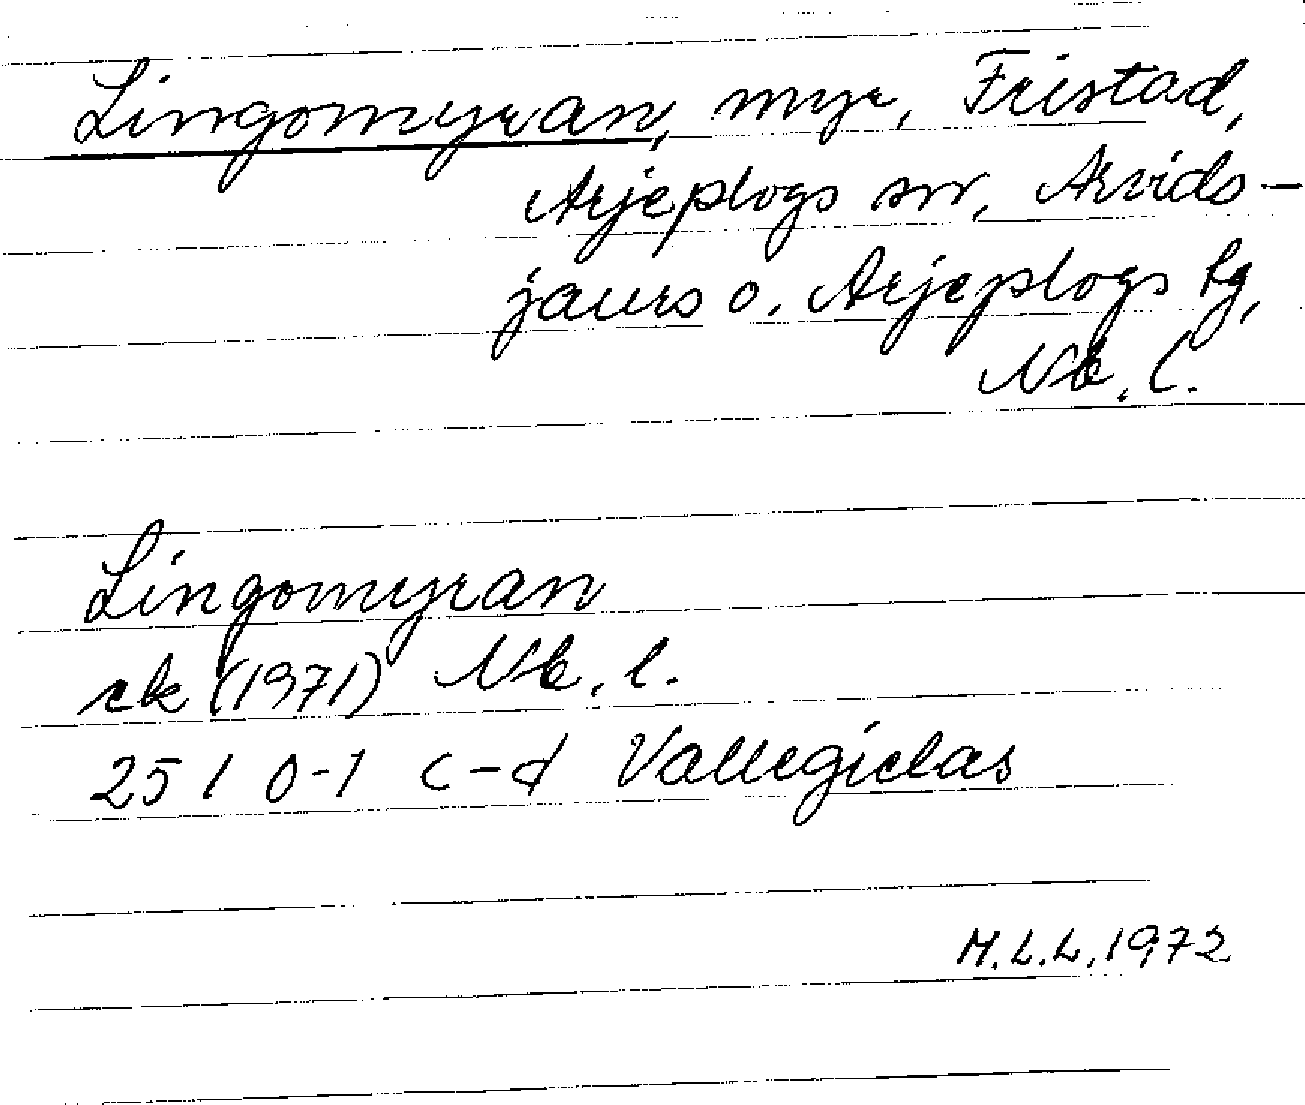 Lingomyran, myr, Fristad,
Arjeplogs sn, Arvids-
jaurs o. Arjeplogs tg,
Nb. l.
Lingomyran
ek (1971) Nb. l.
25 I 0-1 c-d Vallegielas
M.L.L. 1972